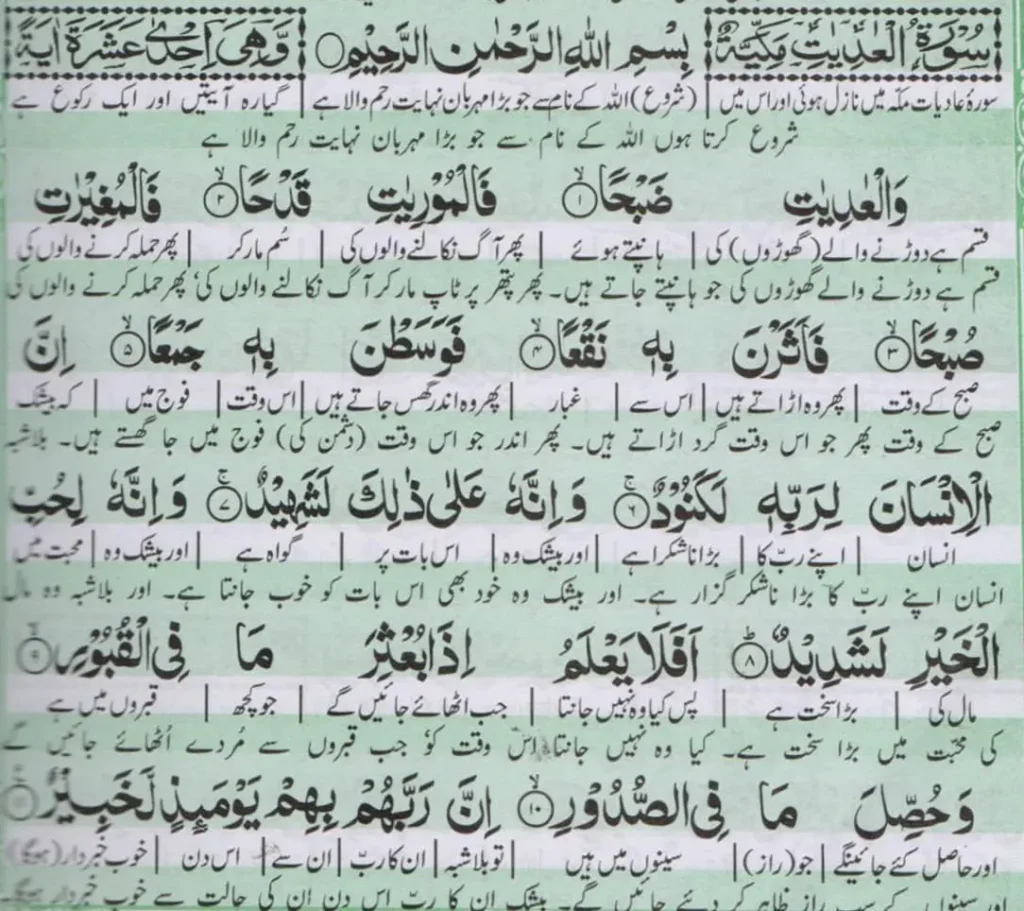 سُوْرَةُ الْعٰدِیٰتِ مَکِّیَّۃٌ بِسْمِ اللهِ الرَّحْمٰنِ الرَّحِیْمِ وَّهِیَ اِحْدٰی عَشَرَةَ اٰیَةً
سورۂ عادیات مکہ میں نازل ہوئی اور اس میں | (شروع) اللہ کے نام سے جو بڑا مہربان نہایت رحم والا ہے | گیارہ آیتیں اور ایک رکوع ہے
شروع کرتا ہوں اللہ کے نام سے جو بڑا مہربان نہایت رحم والا ہے
وَالْعٰدِیٰتِ ضَبْحًا ۱ فَالْمُوْرِیٰتِ قَدْحًا ۲ فَالْمُغِیْرٰتِ
قسم ہے دوڑنے والے (گھوڑوں) کی | ہانپتے ہوئے | پھر آگ نکالنے والوں کی | سُم مار کر | پھر حملہ کرنے والوں کی
قسم ہے دوڑنے والے گھوڑوں کی جو ہانپتے جاتے ہیں۔ پھر پتھر پر ٹاپ مار کر آگ نکالنے والوں کی، پھر حملہ کرنے والوں کی
صُبْحًا ۳ فَاَثَرْنَ بِهٖ نَقْعًا ۴ فَوَسَطْنَ بِهٖ جَمْعًا ۵ اِنَّ
صبح کے وقت | پھر وہ اڑاتے ہیں | اس سے | غبار | پھر وہ اندر گھس جاتے ہیں | اس وقت | فوج میں | کہ بیشک
صبح کے وقت پھر جو اس وقت گرد اڑاتے ہیں۔ پھر اندر جو اس وقت (دشمن کی) فوج میں جا گھستے ہیں۔ بلاشبہ
الْاِنْسَانَ لِرَبِّهٖ لَکَنُوْدٌ ۶ وَ اِنَّهٗ عَلٰی ذٰلِكَ لَشَهِیْدٌ ۷ وَ اِنَّهٗ لِحُبِّ
انسان | اپنے ربّ کا | بڑا ناشکرا ہے | اور بیشک وہ | اس بات پر | گواہ ہے | اور بیشک وہ | محبت میں
انسان اپنے ربّ کا بڑا ناشکر گزار ہے۔ اور بیشک وہ خود بھی اس بات کو خوب جانتا ہے۔ اور بلاشبہ وہ مال
الْخَیْرِ لَشَدِیْدٌ ۸ اَفَلَا یَعْلَمُ اِذَا بُعْثِرَ مَا فِی الْقُبُوْرِ ۹
مال کی | بڑا سخت ہے | پس کیا وہ نہیں جانتا | جب اٹھائے جائیں گے | جو کچھ | قبروں میں ہے
کی محبّت میں بڑا سخت ہے۔ کیا وہ نہیں جانتا اس وقت کو جب قبروں سے مُردے اُٹھائے جائیں گے
وَ حُصِّلَ مَا فِی الصُّدُوْرِ ۱۰ اِنَّ رَبَّهُمْ بِهِمْ یَوْمَىِٕذٍ لَّخَبِیْرٌ ۱۱
اور حاصل کئے جائینگے | جو (راز) | سینوں میں ہیں | تو بلاشبہ | ان کا ربّ | ان سے | اس دن | خوب خبردار (ہوگا)
اور سینوں کے سب راز ظاہر کر دئیے جائیں گے۔ بیشک ان کا ربّ اس دن ان کی حالت سے خوب خبردار ہوگا۔